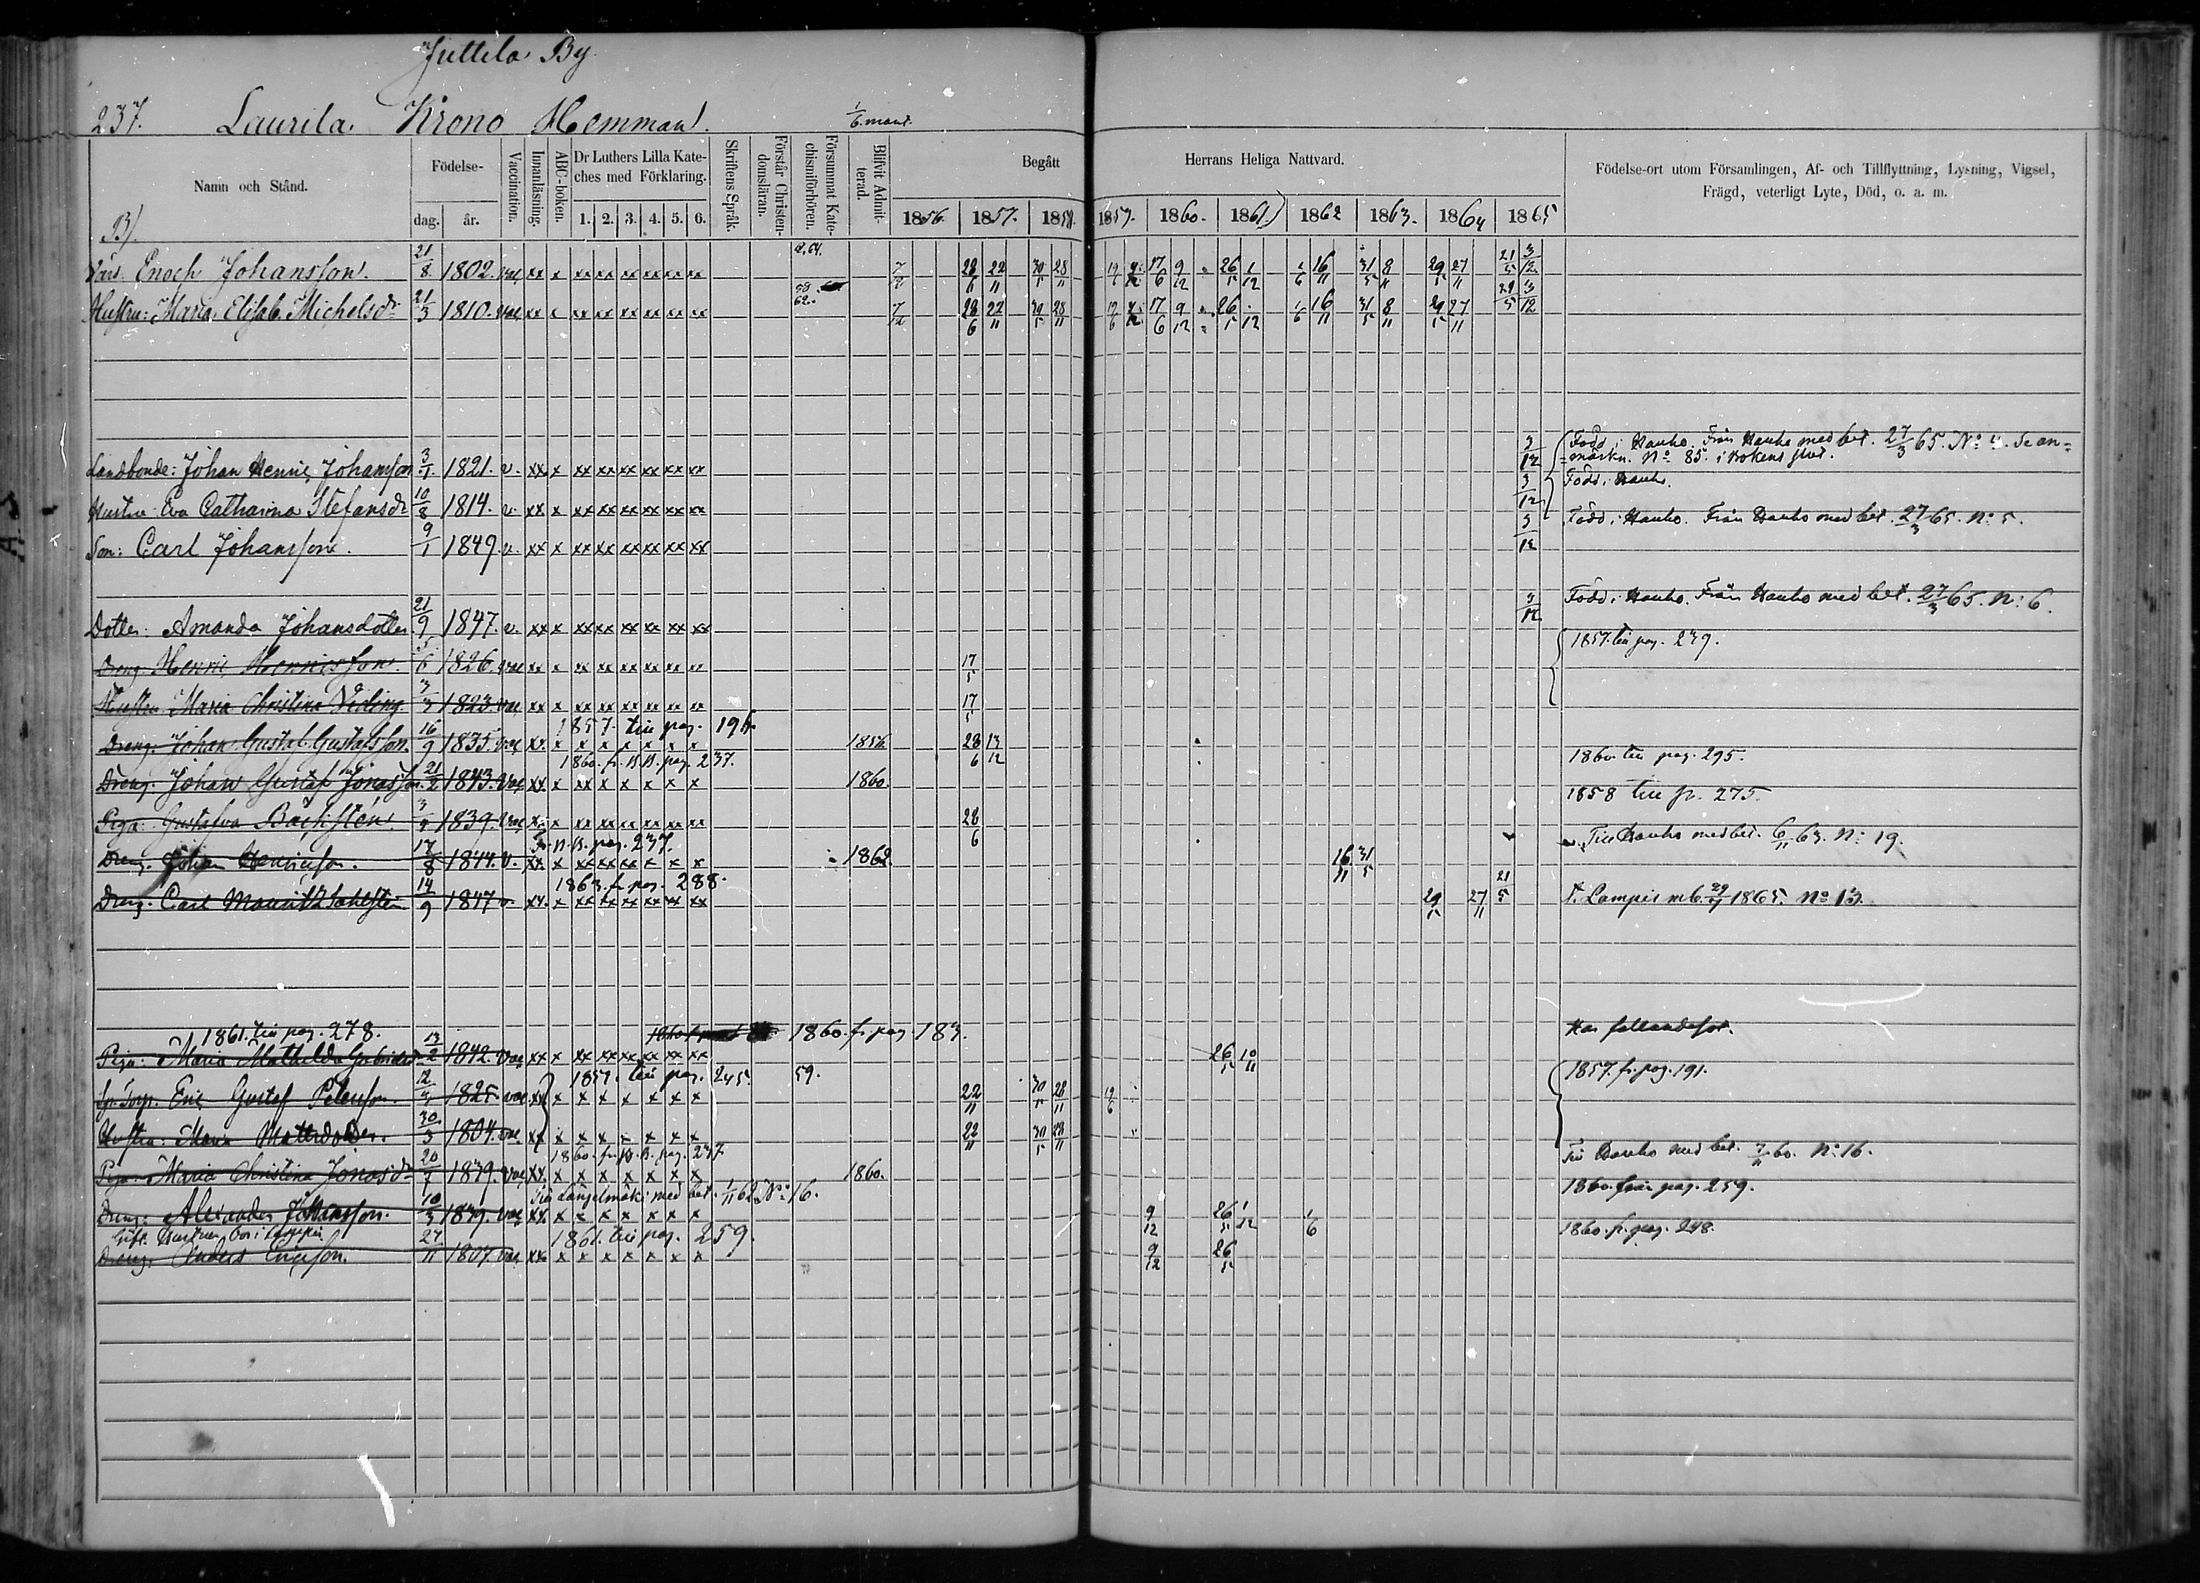 Juttila By
237. Laurila Krono Hemman. 1/6 mant.
Namn och Stånd. Födelse- dag. år. Vaccination. Innanläsning. ABC-boken. Dr Luthers Lilla Kateches med Förklaring. 1. 2. 3. 4. 5. 6. Skriftens Språk. Förstår Christendomsläran. Försummat Katechismiförhören. Blifvit Admitterad. Begått Herrans Heliga Nattvard. Födelse-ort utom Församlingen, Af- och Tillflyttning, Lysning, Vigsel, Frägd, veterligt Lyte, Död, o. a. m.
1856. 1857. 1858. 1859. 1860. 1861 1862 1863. 1864 1865
B).
Enoch Johansson. 21/8 1802. vac xx x xx xx xx xx xx xx 7/12 28/6 22/11 30/5 28/11 17/6 9/12 26/5 1/12 1/6 16/11 31/5 8/11 29/5 27/11 21/5 3/12
Hustru: Maria Elisab. Michelsdr 21/3 1810. vac xx x xx xx xx xx xx xx 7/12 28/6 22/11 30/5 28/11 17/6 9/12 26/5 12 1/6 16/11 31/5 8/11 29/5 27/11 3/12
Landbonde: Johan Henric Johansson 3/1 1821. v. xx x xx xx xx xx xx xx 3/12 Född i Hauho. Från Hauho med bet. 27/3 65. No 4. Se anmärkn. No 85. i Bokens slut.
Hustru Eva Catharina Stefansdr 10/8 1814. v. xx x xx xx xx xx xx xx 3/12 Född i Hauho.
Son: Carl Johansson. 9/1 1849. v. xx x xx xx xx xx xx xx 3/12 Född i Hauho. Från Hauho med bet. 27/3 65. No 5.
Dotter: Amanda Johansdotter 21/9 1847. v. xx x xx xx xx xx xx xx 3/12 Född i Hauho. Från Hauho med bet. 27/3 65. No 6.
Dreng Henric Henricsson. 5/6 1826. vac xx x xx xx xx xx xx xx 17/5 1857. till pag. 239.
Hustru Maria Christina 3/3 1823. vac xx x xx xx xx xx xx xx 17/5
1857. till pag.
Dreng: Johan Gustaf Gustafsson. 16/9 1835. vac xx. x x x x x x x 1856 28/6 13/12
1860. fr. B.B. pag. 237.
Dreng. Johan Gustaf Jonasson. 21/2 1843. vac xx. x x x x x x x 1860. 1860. till pag. 295.
Piga: Gustafva 1839. vac x. x xx xx xx xx xx xx 28/6 1858 till p. 275.
Fr. B.B. pag. 237.
Dreng. Johan Henricsson. 17/8 1844. v. xx. x xx xx xx x x x 1862 16/11 31/5 Till Hauho med bet. 6/11 63. No 19.
1863. fr. pag. 288.
Dreng. Carl Mauritz Sahlsten 14/9 1847 v. xx. x xx xx xx xx xx xx 29/5 27/11 21/5 T. Lampis m.b. 1865. No 13.
1861. till pag. 278. 1860. fr. pag. 183. Har fallandesot.
Piga: Maria Mathilda Gabrielsdr 13/2 1842. vac xx x xx xx xx xx xx xx 26/5 10/11
1859. till pag. 245. 59. 1857. fr. pag. 191.
Eric Gustaf Petersson. 1825. vac xx x x x x x x x 22/11 30/5 28/11 12/6
Hustru: Maria Mattsdotter. 30/3 1804. vac xx x x x x x x x 22/11 30/5 28/11
1860. fr. B.B. pag. 237.
Piga: Maria Christina Jonasdr 1839. vac xx. x x x x x x x 1860. Till Hauho med bet. 7/11 60. No 16.
Till Längelmäki med bet. 1/11 62 No 16.
Dreng: Alexander Johansson. 10/3 1839. vac xx. x x x x x x x 9/12 26/5 1/12 1/6 1860. från pag. 259.
1861. till pag. 259.
Dreng: Anders Ericsson. 27/11 1807. vac xx. x x x x x x x 9/12 26/5 1860. fr. pag. 248.